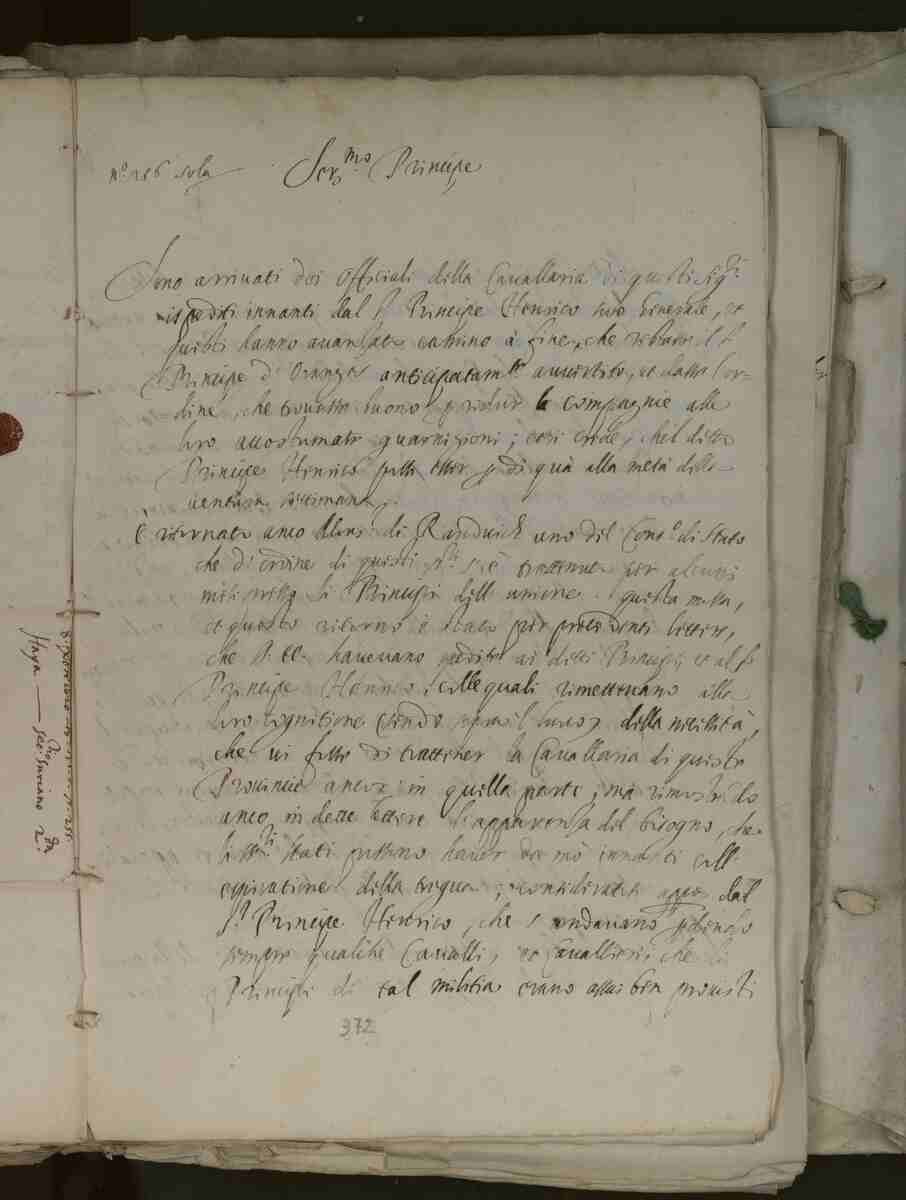 n.º 186 sola
Ser.mo Principe
Sono arrivati doi Officiali della Cavallaria di questi Sig.ri
ispediti innanti dal S.r Principe Henrico suo Generale, et
questi hanno avanzato camino à fine, che restasse il S.r
Principe d'Oranges anticipatam.te avvertito, et dasse l'or-
dine, che trovasse buono p ridur le compagnie alle
loro accostumate guarnigioni; così crede, che'l ditto
Principe Henrico possi esser p di quà alla metà della
ventura settimana.
È ritornato anco Mons.r di Randwich uno del Cons.o di Stato
che di ordine di questi S.ri s'è trattenuto per alcuni
mesi presso li Principi dell'unione. questa mossa,
et questo ritorno è stato per precedenti lettere,
che S. Ecc. havevano scritto ai ditti Principi, et al S.r
Principe Henrico; colle quali rimettevano alla
loro cognitione essendo il luoco, della necessità,
che vi fosse di trattener la Cavallaria di queste
Provincie ancora in quella parte; mà rimostrando
anco in dette lettere l'apparenza del bisogno, che
li Stati potessero haver da mò innanti coll'
espiratione della tregua; considerato appo dal
S.r Principe Henrico, che s'andavano perdendo
sempre qualche Cavalli, et Cavallieri; che li
Principi di tal militia erano assai ben provisti
372
Haya
2.da